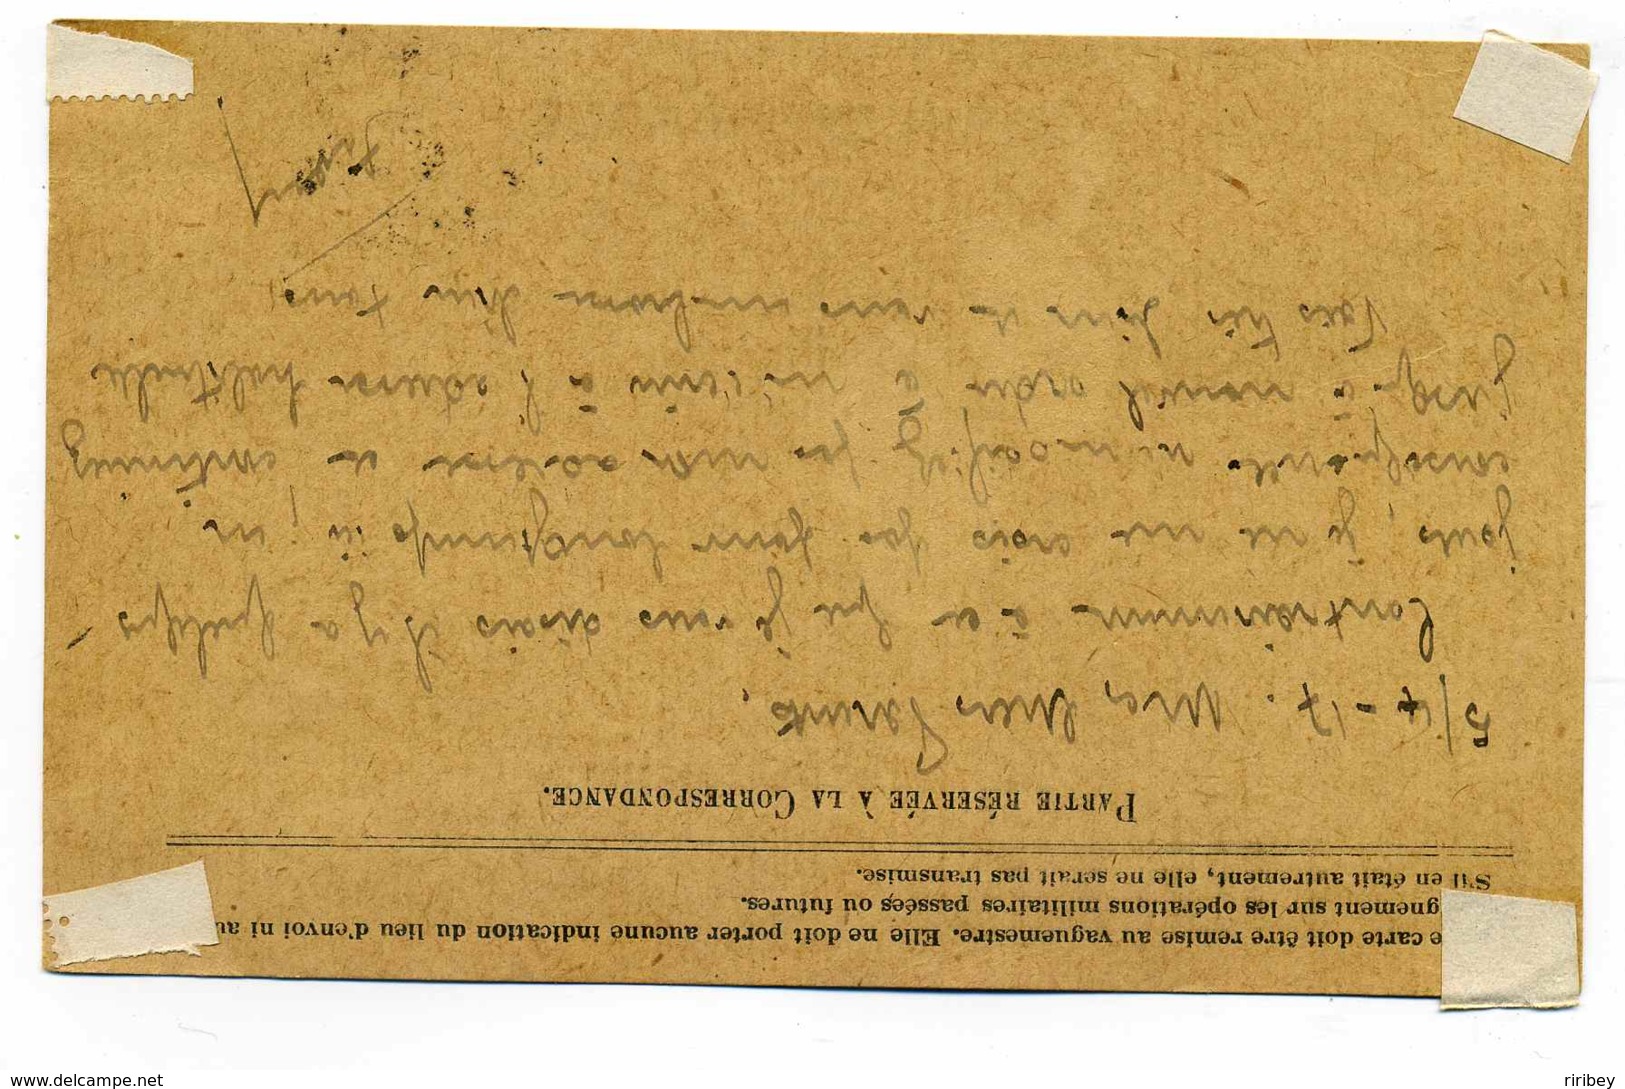 e carte doit être remise au vaguemestre. Elle ne doit porter aucune indication du lieu d'envoi ni au
gnement sur les opérations militaires passées ou futures.
S'il en était autrement, elle ne serait pas transmise.
PARTIE RÉSERVÉE À LA CORRESPONDANCE.
5/4-17. Mes chers Parents,
Contrairement à ce que je vous disais il y a quelques
jours, je ne me crois pas pour longtemps ici; en
conséquence ne modifiez pas mon adresse et continuez
jusqu'à nouvel ordre à m'écrire à l'adresse habituelle
Vais très bien et vous embrasse bien tous
www.delcampe.net
riribey